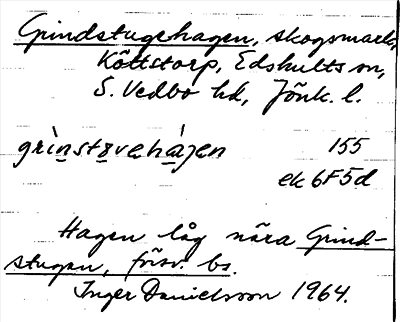 Grindstugehagen, skogsmark,
Köttstorp, Edshults sn,
S. Vedbo hd, Jönk. l.
grìnstøvehàjen 155
ek 6F5d
Hagen låg nära Grind-
stugan, försv. bs.
Inger Danielsson 1964.